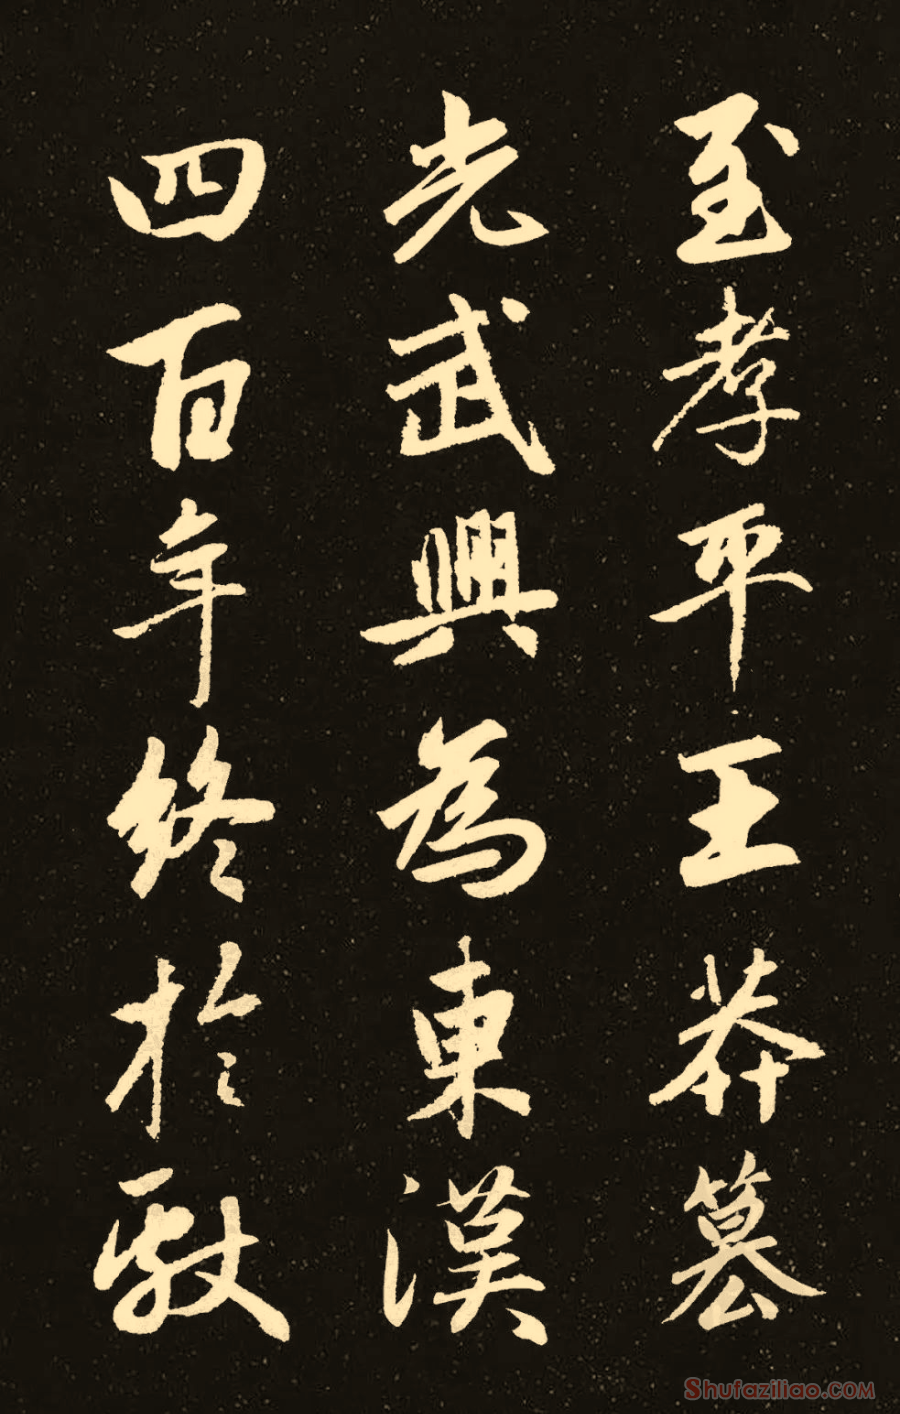 至孝平王莽篡
光武興為東漢
四百年終於獻
Shufaziliao.com